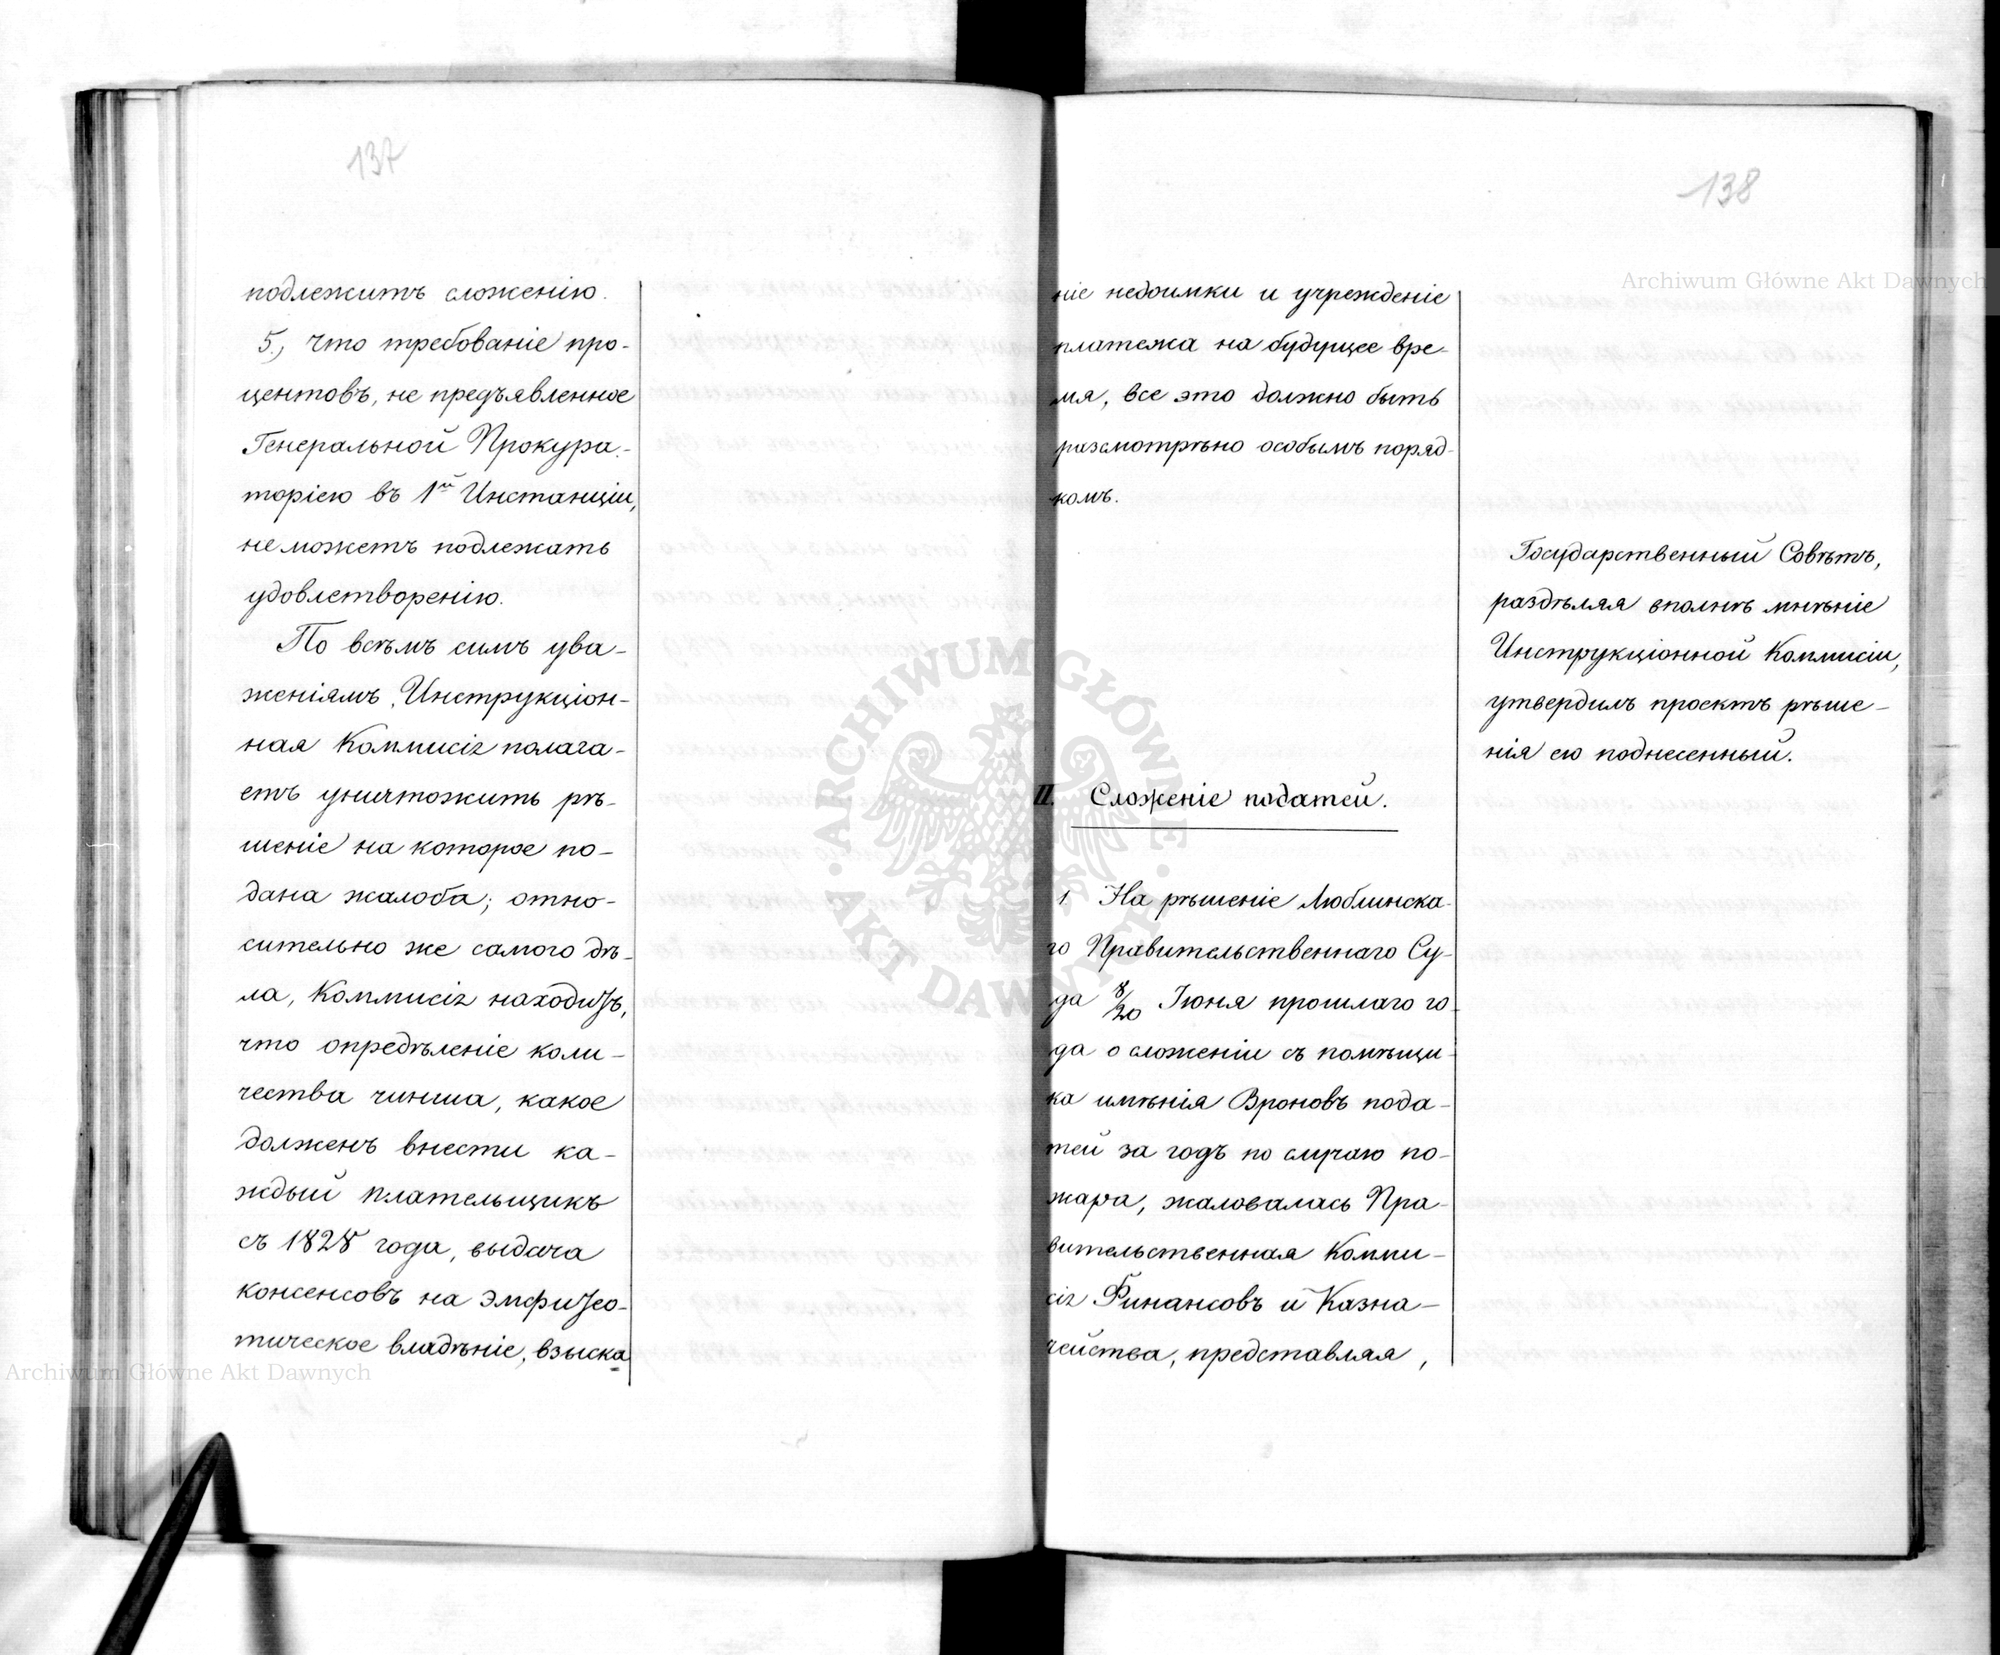 137
подлежитъ сложенію.
5., что требованіе про-
центовъ, не предъявленное
Генеральной Прокура-
торіею въ 1й Инстанціи,
не можетъ подлежать
удовлетворенію.
По всѣмъ симъ ува-
женіямъ, Инструкціон-
ная Коммисія полага-
етъ уничтожить рѣ-
шеніе на которое по-
дана жалоба; отно-
сительно же самого дѣ-
ла, Коммисія находитъ,
что опредѣленіе коли-
чества чинша, какое
долженъ внести ка-
ждый плательщикъ
съ 1828 года, выдача
консенсовъ на эмфитео-
тическое владѣніе, взыска=
138
ніе недоимки и учрежденіе
платежа на будущее вре-
мя, все это должно быть
разсмотрѣно особымъ поряд-
комъ.
Государственный Совѣтъ,
раздѣляя вполнѣ мнѣніе
Инструкціонной Коммисіи,
утвердилъ проектъ рѣше-
нія ею поднесенный.
II. Сложеніе податей.
1 На рѣшеніе Люблинска-
го Правительственнаго Су-
да 8/20 Іюня прошлаго го-
да о сложеніи съ помѣщи-
ка имѣнія Вроновъ пода-
тей за годъ по случаю по-
жара, жаловалась Пра-
вительственная Комми-
сія Финансовъ и Казна-
чейства, представляя,
Archiwum Główne Akt Dawnych
Archiwum Główne Akt Dawnych
ARCHIWUM GŁÓWNE · AKT DAWNYCH ·